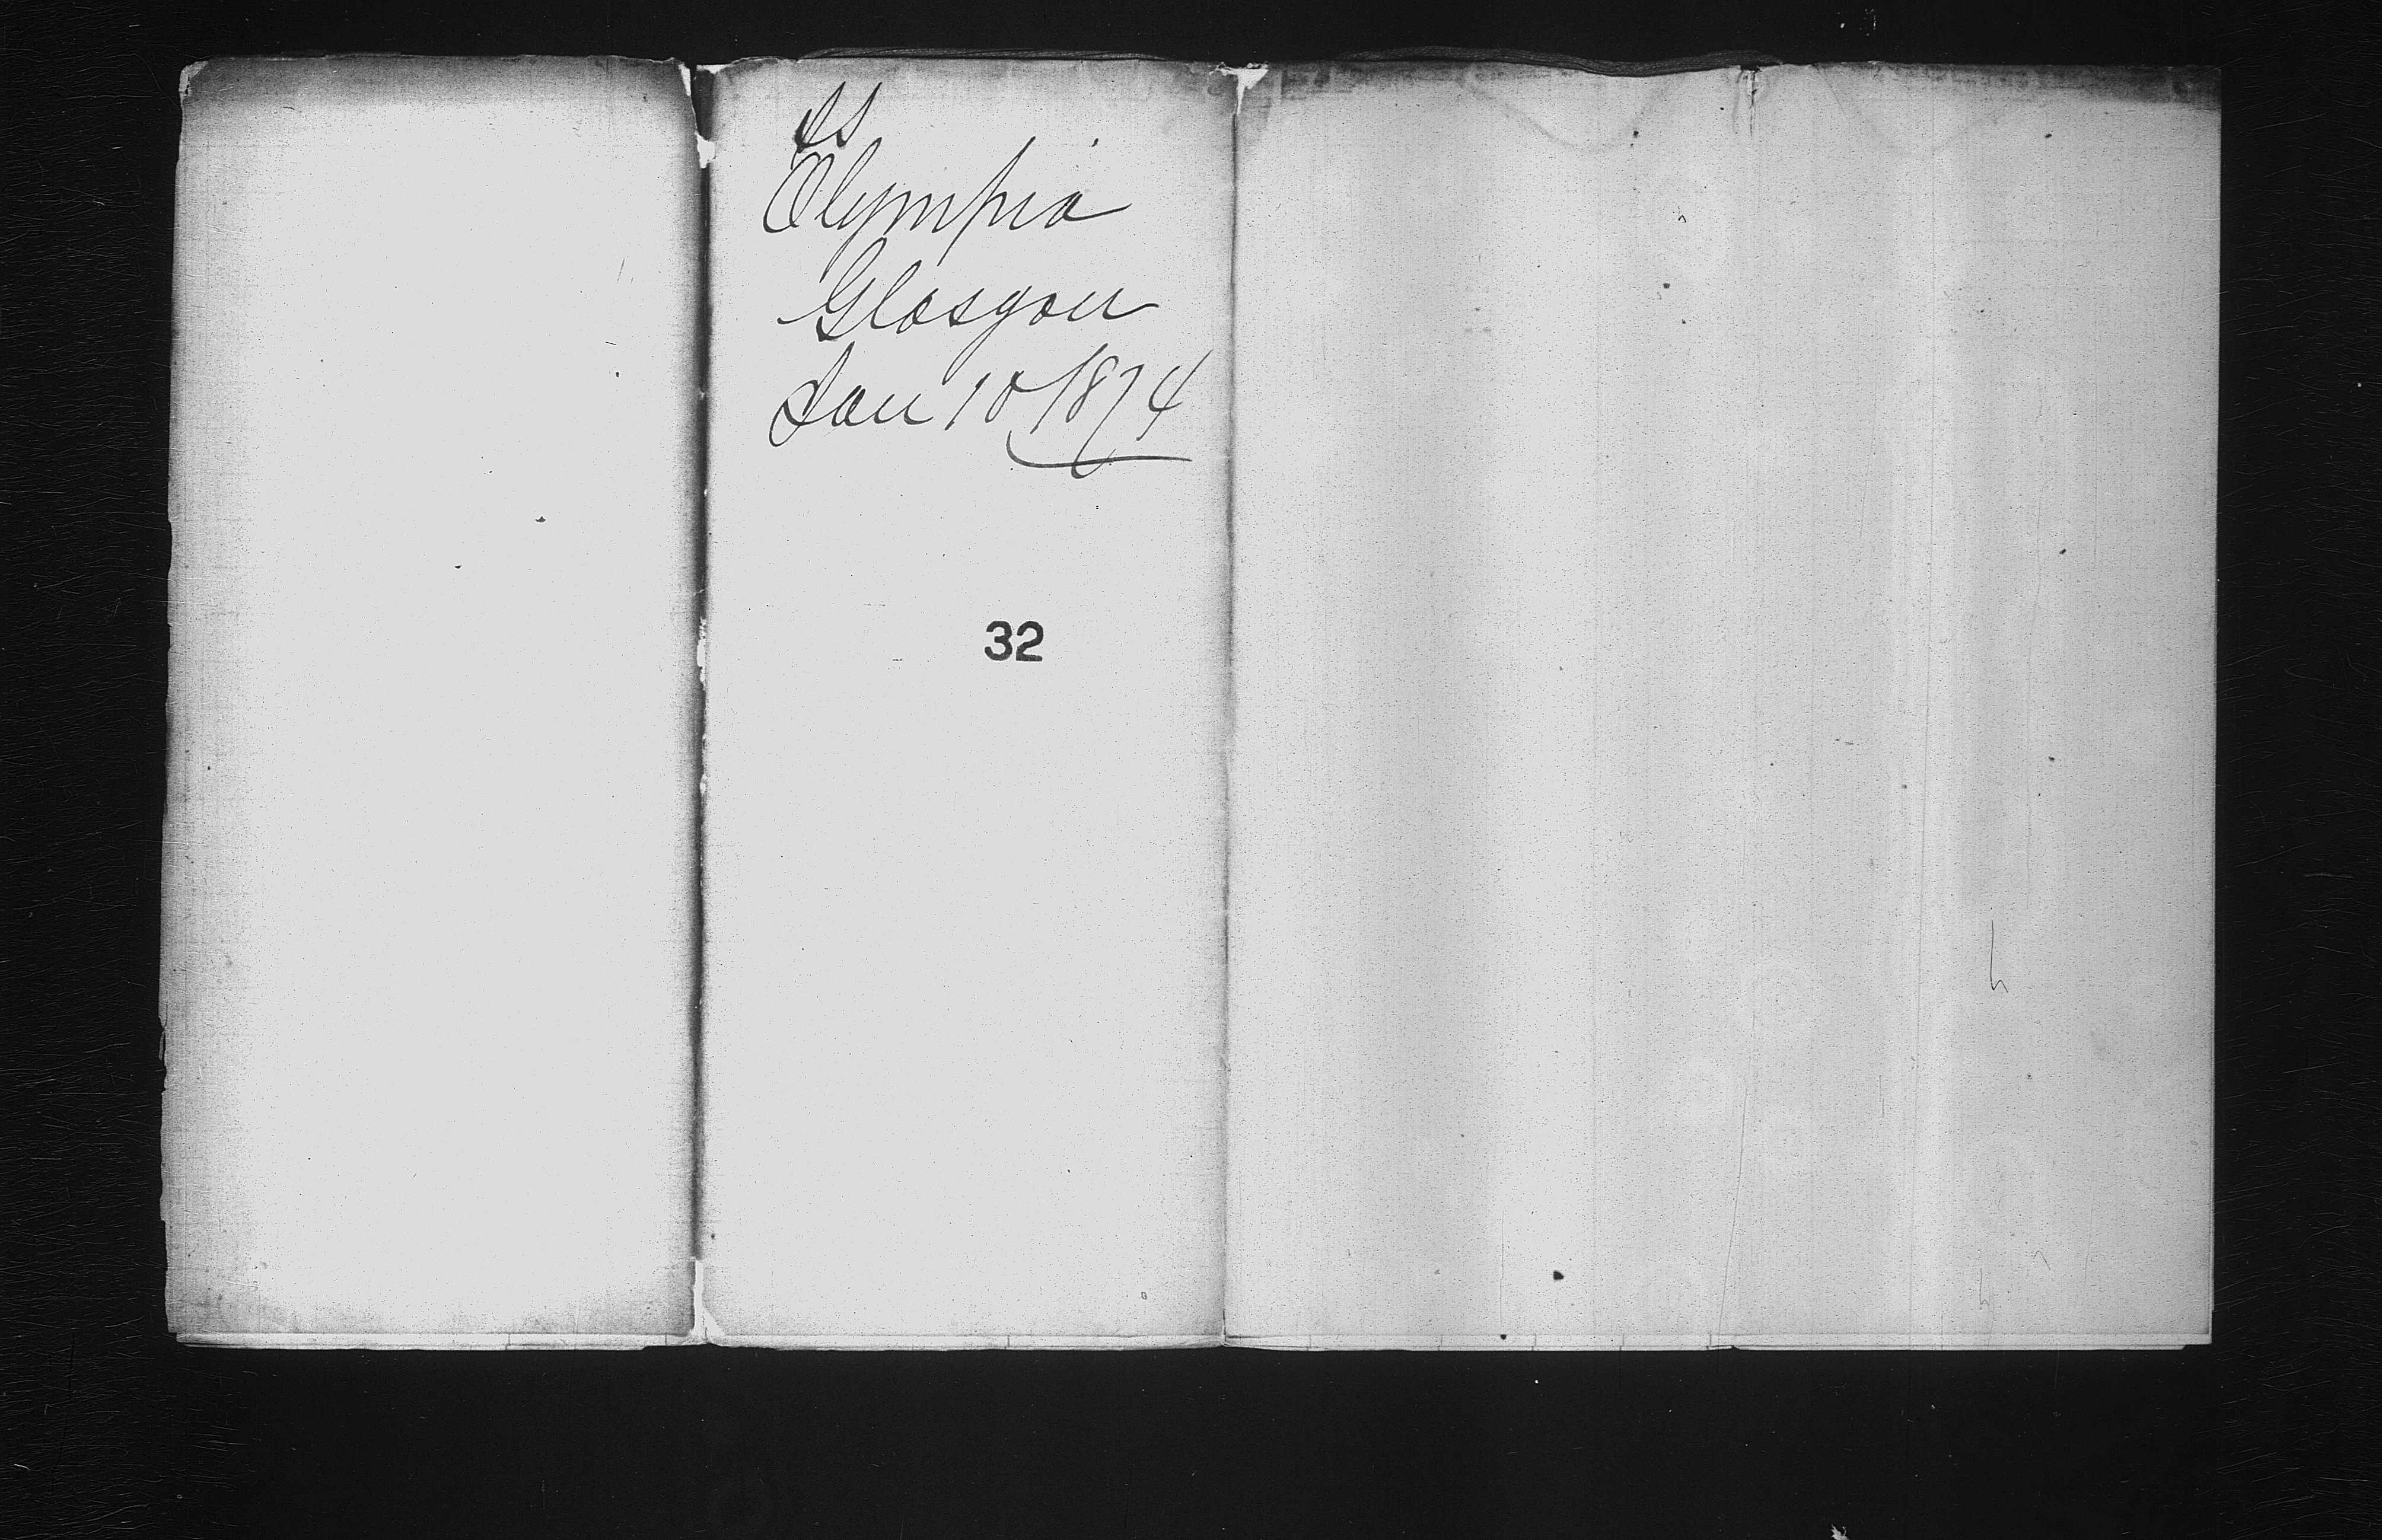 SS
Olympia
Glasgow
Jan 10/1874
32